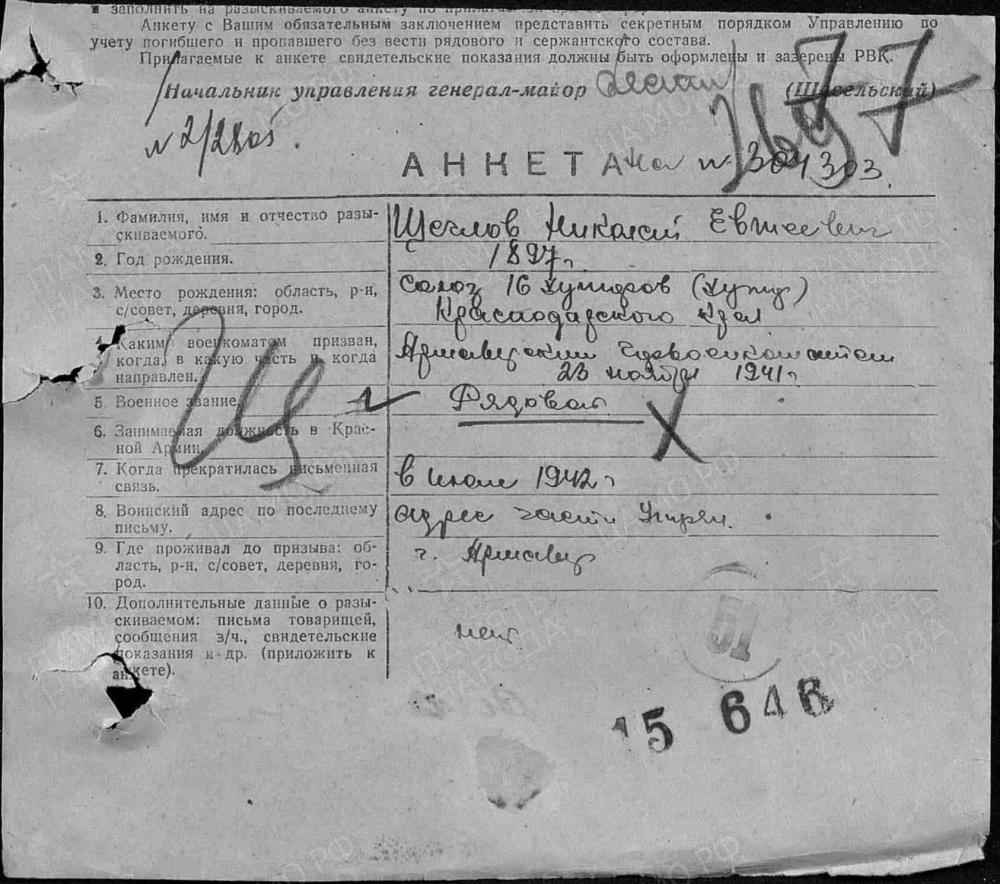 и заполнить на разыскиваемого анкету по
Анкету с Вашим обязательным заключением представить секретным порядком Управлению по
учету погибшего и пропавшего без вести рядового и сержантского состава.
Прилагаемые к анкете свидетельские показания должны быть оформлены и заверены РВК.
Начальник управления генерал-майор (Шавельский)
№ 2/2805
3697
АНКЕТА на № 304303.
1. Фамилия, имя и отчество разы-
скиваемого.
Щеглов Николай Евтеевич
2. Год рождения.
1897 г.
3. Место рождения: область, р-н,
с/совет, деревня, город.
Союз 16 хуторов (хутор)
Краснодарского края
4. Каким военкоматом призван,
когда, в какую часть и когда
направлен.
Армавирским Горвоенкоматом
23 ноября 1941 г.
5. Военное звание.
Рядовой
6. Занимаемая должность в Крас-
ной Армии.
Щ
7. Когда прекратилась письменная
связь.
в июле 1942 г.
8. Воинский адрес по последнему
письму.
адрес части
9. Где проживал до призыва: об-
ласть, р-н, с/совет, деревня, го-
род.
г. Армавир
10. Дополнительные данные о разы-
скиваемом: письма товарищей,
сообщения з/ч., свидетельские
показания и др. (приложить к
анкете).
нет
51
15 646